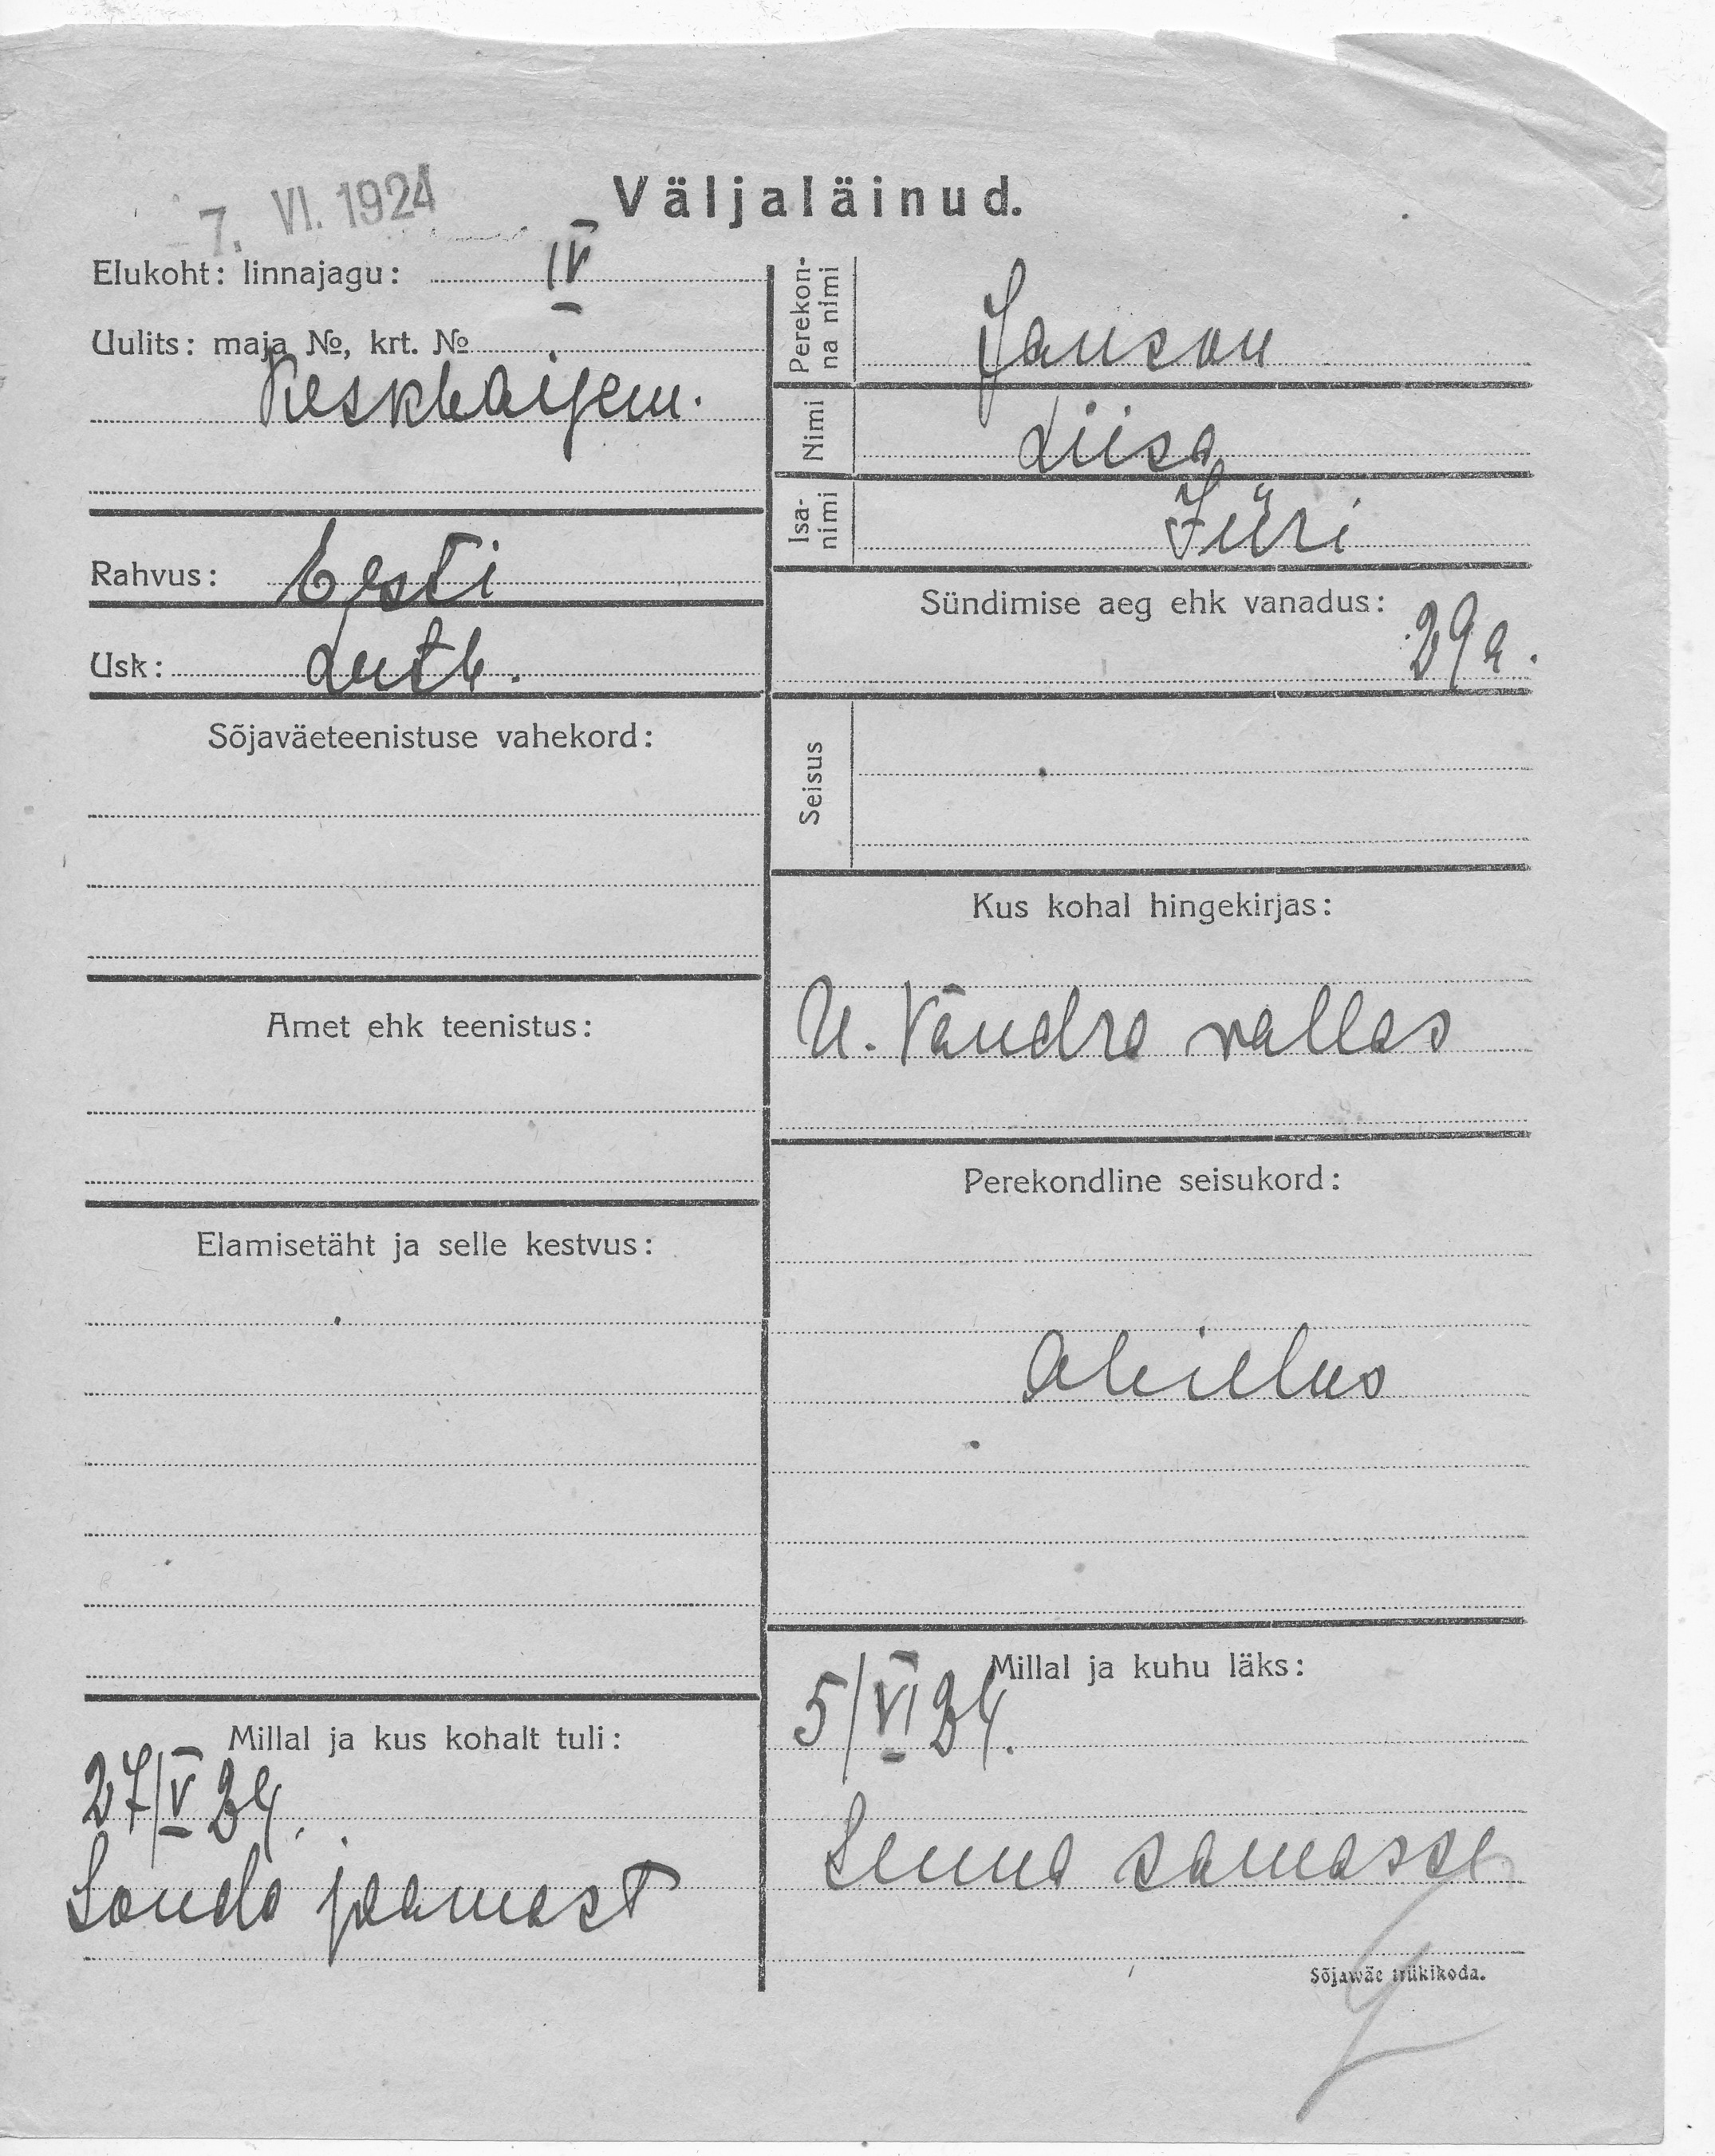 7. VI. 1924
Väljaläinud.
Elukoht: linnajagu: IV
Uulits: maja №, krt. №
Keskhaigem.
Rahvus: Eesti
Usk: Luth.
Sõjaväeteenistuse vahekord:
Amet ehk teenistus:
Elamisetäht ja selle kestvus:
Millal ja kus kohalt tuli:
27/V 24.
Sonda jaamast
Perekon-
na nimi Janson
Nimi Liisa
Isa-
nimi Jüri
Sündimise aeg ehk vanadus:
29 a.
Seisus
Kus kohal hingekirjas:
U. Vändra vallas
Perekondline seisukord:
Abielus
Millal ja kuhu läks:
5/VI 24.
Senna samasse
Sõjawäe trükikoda.